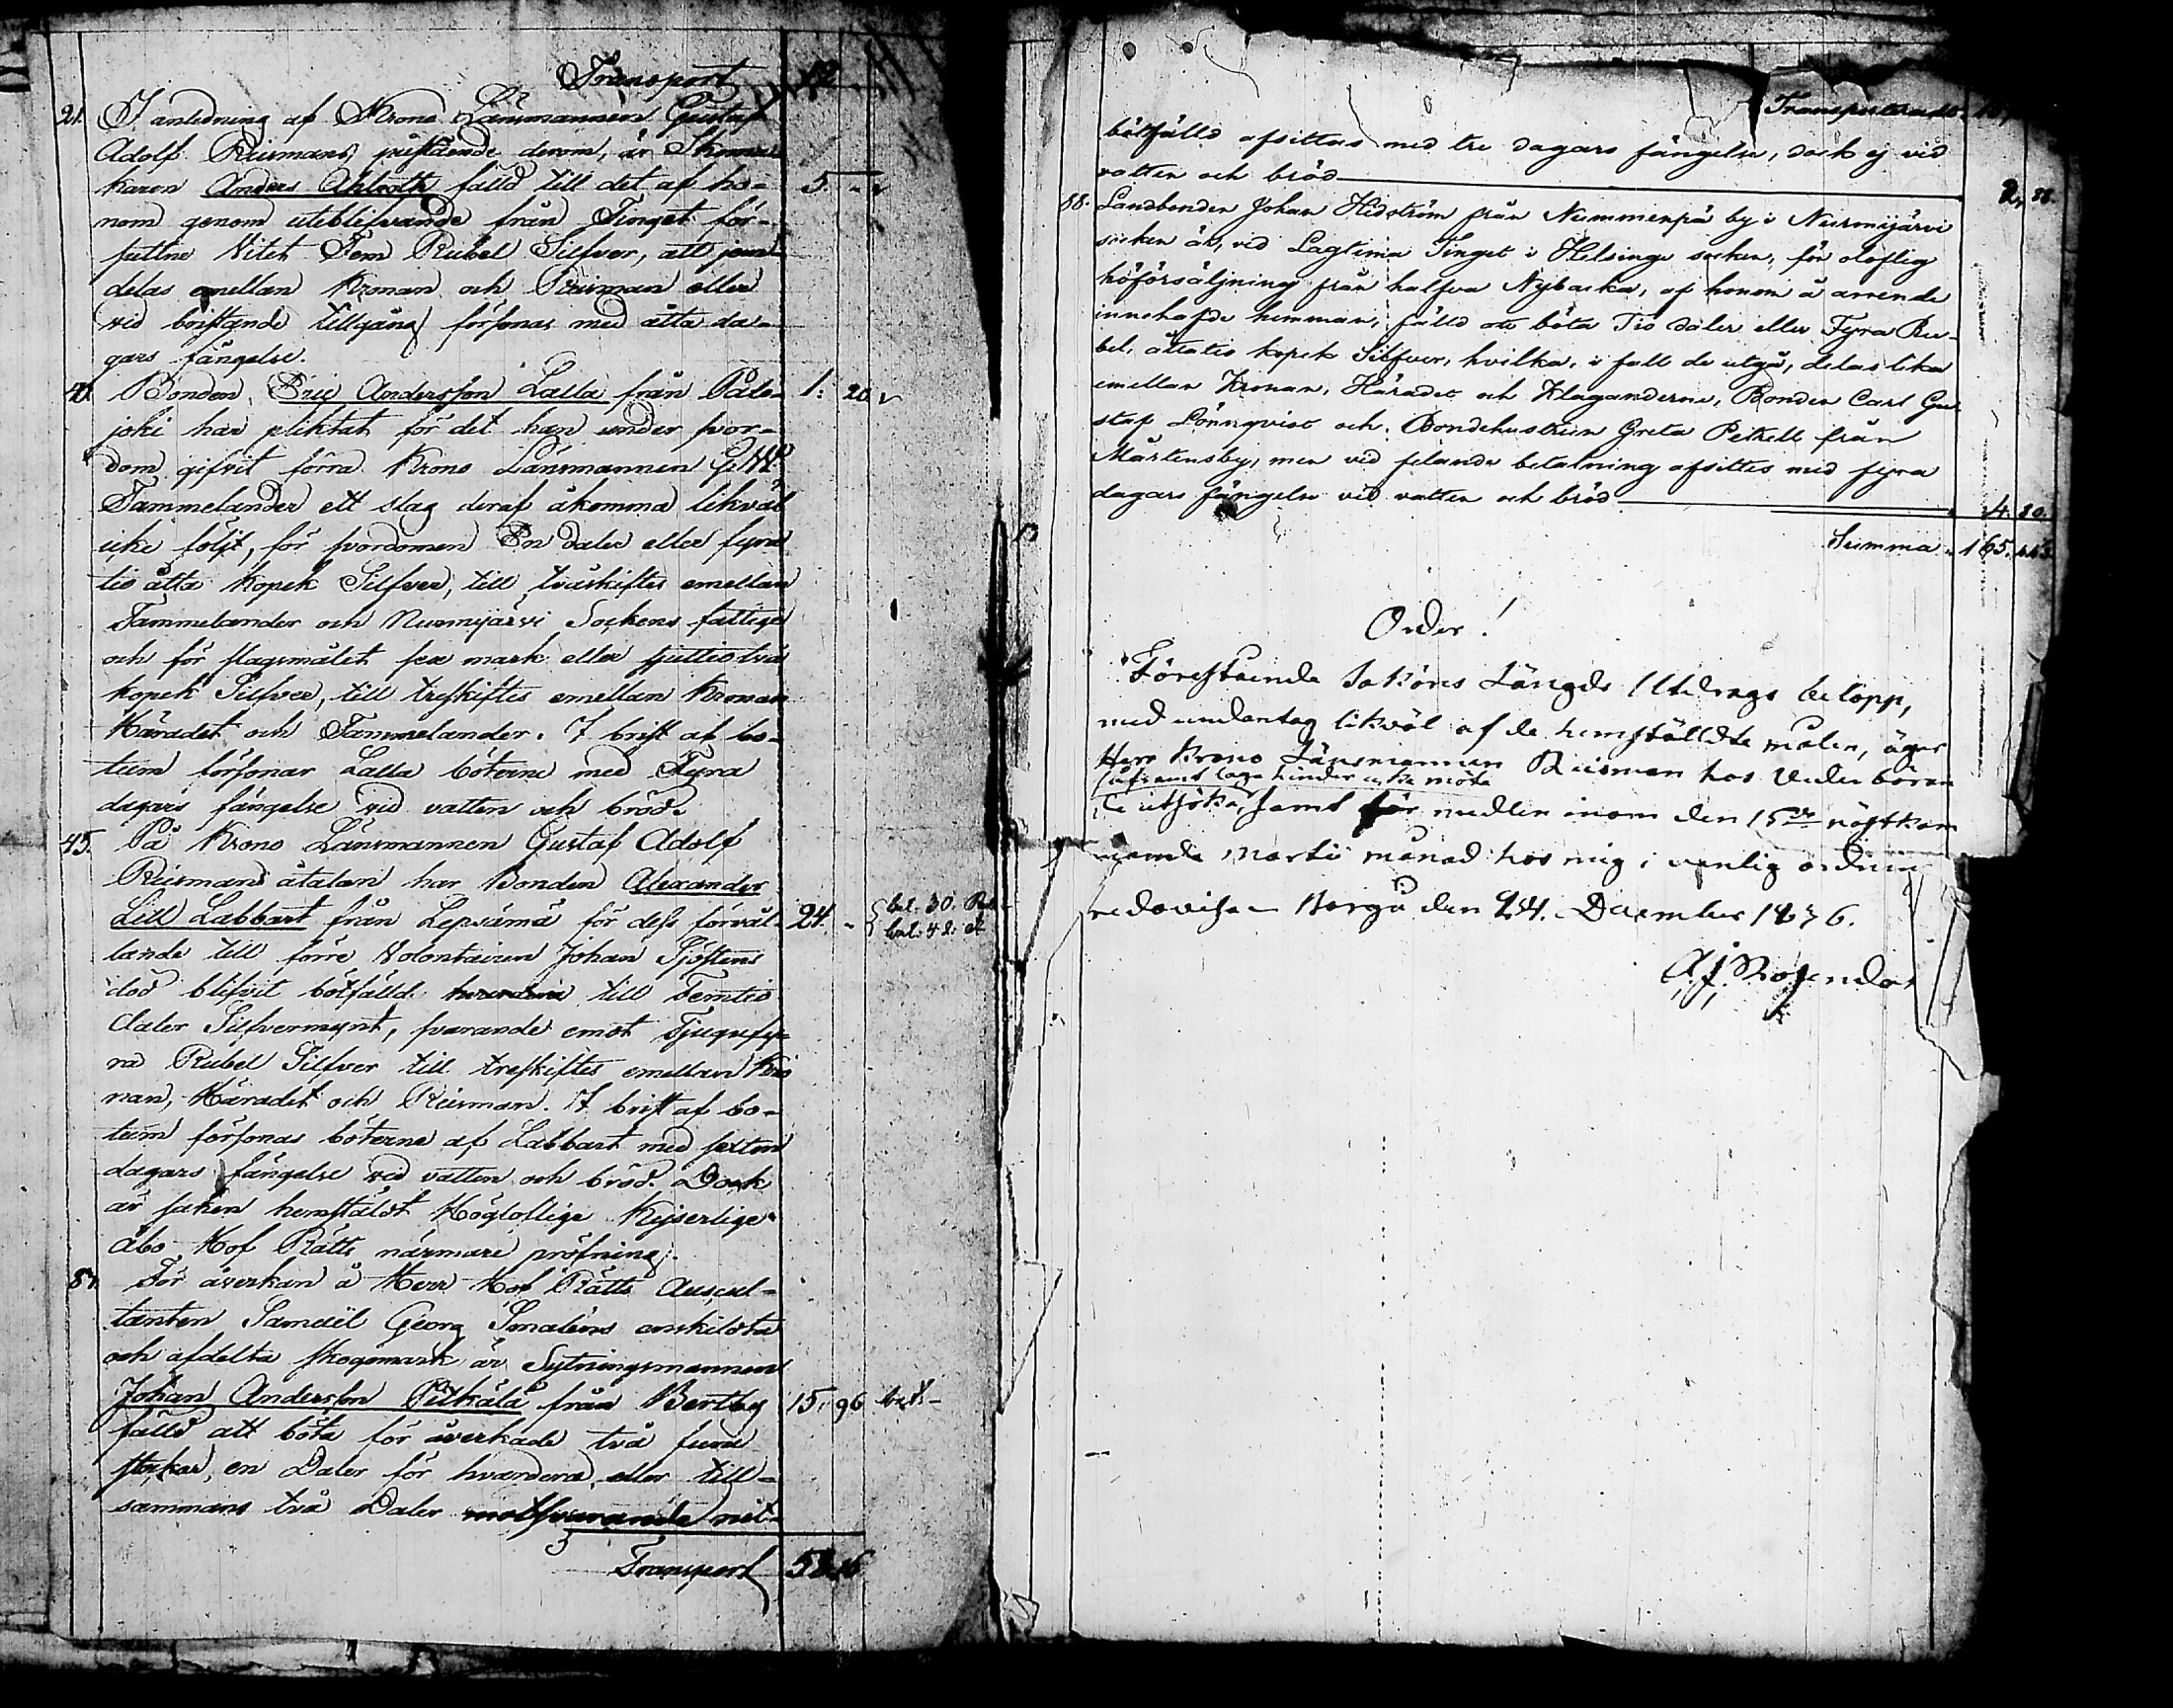 Transport 12
21. I anledning af Krono Länsmannen Gustaf
Adolf Riismans påstående derom, är Skoma-
karen Anders Ahlroth fälld till det af ho- 5. - -
nom genom uteblifvande från Tinget för-
suttne Vitet Fem Rubel Silfver, att jem
delas emellan Kronan och Riisman eller
vid bristande tillgång försonas med åtta da-
gars fängelse.
40. Bonden Eric Andersson Lalla från Palo- 1. 20
joki har pliktat för det han under svor-
dom gifvit förra Krono Länsmannen G. W.
Tammelander ett slag deraf åkomma likväl
icke följt, för svordomen En daler eller fyra
tio åtta Kopek Silfver, till tvåskiftes emellan
Tammelander och Nurmijärvi Sockens fattige
och för slagsmålet sex mark eller sjuttio två
kopek Silfver, till treskiftes emellan Kronan
Häradet och Tammelander. I brist af bo-
tum försonar Lalla böterne med Fyra
dagars fängelse vid vatten och bröd.
45. På Krono Länsmannen Gustaf Adolf
Riismans åtalan har Bonden Alexander
Lill Labbart från Lepsämä för dess förvål- 24. -
lande till förre Volontairen Johan Sjöstens
död blifvit bötfälld till Femtio
daler Silfvermynt, svarande emot Tjugufy-
ra Rubel Silfver till treskiftes emellan Kro
nan, Häradet och Riisman. I brist af bo-
tum försonas böterne af Labbart med sexton
dagars fängelse vid vatten och bröd. Dock
är saken hemstäldt Högloflige Kejserlige
Åbo Hof Rätts närmare pröfning.
87. För åverkan å Herr Hof Rätts Auscul-
tanten Samuel Georg Smaléns enskildta
och afdelta skogsmark är Sytningsmannen
Johan Andersson Pitkälä från Bertby 15. 96
fälld att böta för åverkade två furu
stockar, en Daler för hvardera, eller till-
sammans två Daler motsvarande nit-
Transport 58. 16
Transport
bötfälld afsittas med tre dagars fängelse, dock ej vid
vatten och bröd 2. 88.
88. Landbonden Johan Hedström från Nummenpä by i Nurmijärvi
socken är, vid Lagtima Tinget i Helsinge socken, för oloflig
höförsäljning från halfva Nybacka, af honom å arrende
innehafde hemman, fälld att böta Tio daler eller Fyra Ru-
bel, åttatio kopek Silfver, hvilka, i fall de utgå, delas lika
emellan Kronan, Häradet och Klaganderne, Bonden Carl Gu-
staf Lönnqvist och Bondehustrun Greta Petrell från
Mårtensby, men vid felande betalning afsittes med fyra
dagars fängelse vid vatten och bröd 4. 80.
Summa 165.
Order!
Förestående Saköres Längds Utdrags belopp,
med undantag likväl af de hemställdte målen, äger
Herr Krono Länsmannen Riisman hos Vederböran
såframt laga hinder icke möta
de utsöka, samt medlen inom den 15de nästkom
mande Martii månad hos mig i vanlig ordning
redovisa - Borgå den 24. December 1836.